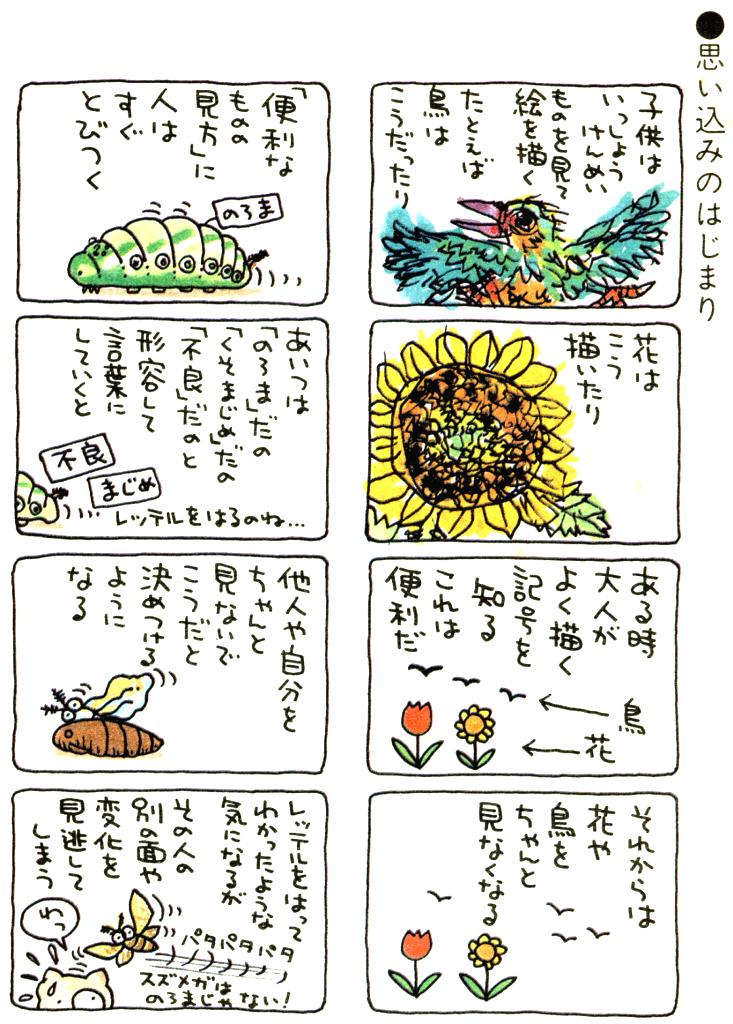 ●思い込みのはじまり
子供は
いっしょう
けんめい
ものを見て
絵を描く
たとえば
鳥は
こうだったり
花は
こう
描いたり
ある時
大人が
よく描く
記号を
知る
これは
便利だ
鳥
花
それからは
花や
鳥を
ちゃんと
見なくなる
「便利な
ものの
見方」に
人は
すぐ
とびつく
のろま
あいつは
「のろま」だの
「くそまじめ」だの
「不良」だのと
形容して
言葉に
していくと
不良
まじめ
レッテルをはるのね…
他人や自分を
ちゃんと
見ないで
こうだと
決めつける
ように
なる
レッテルをはって
わかったような
気になるが
その人の
別の面や
変化を
見逃して
しまう
わっ
パタパタパタ
スズメガは
のろまじゃない！